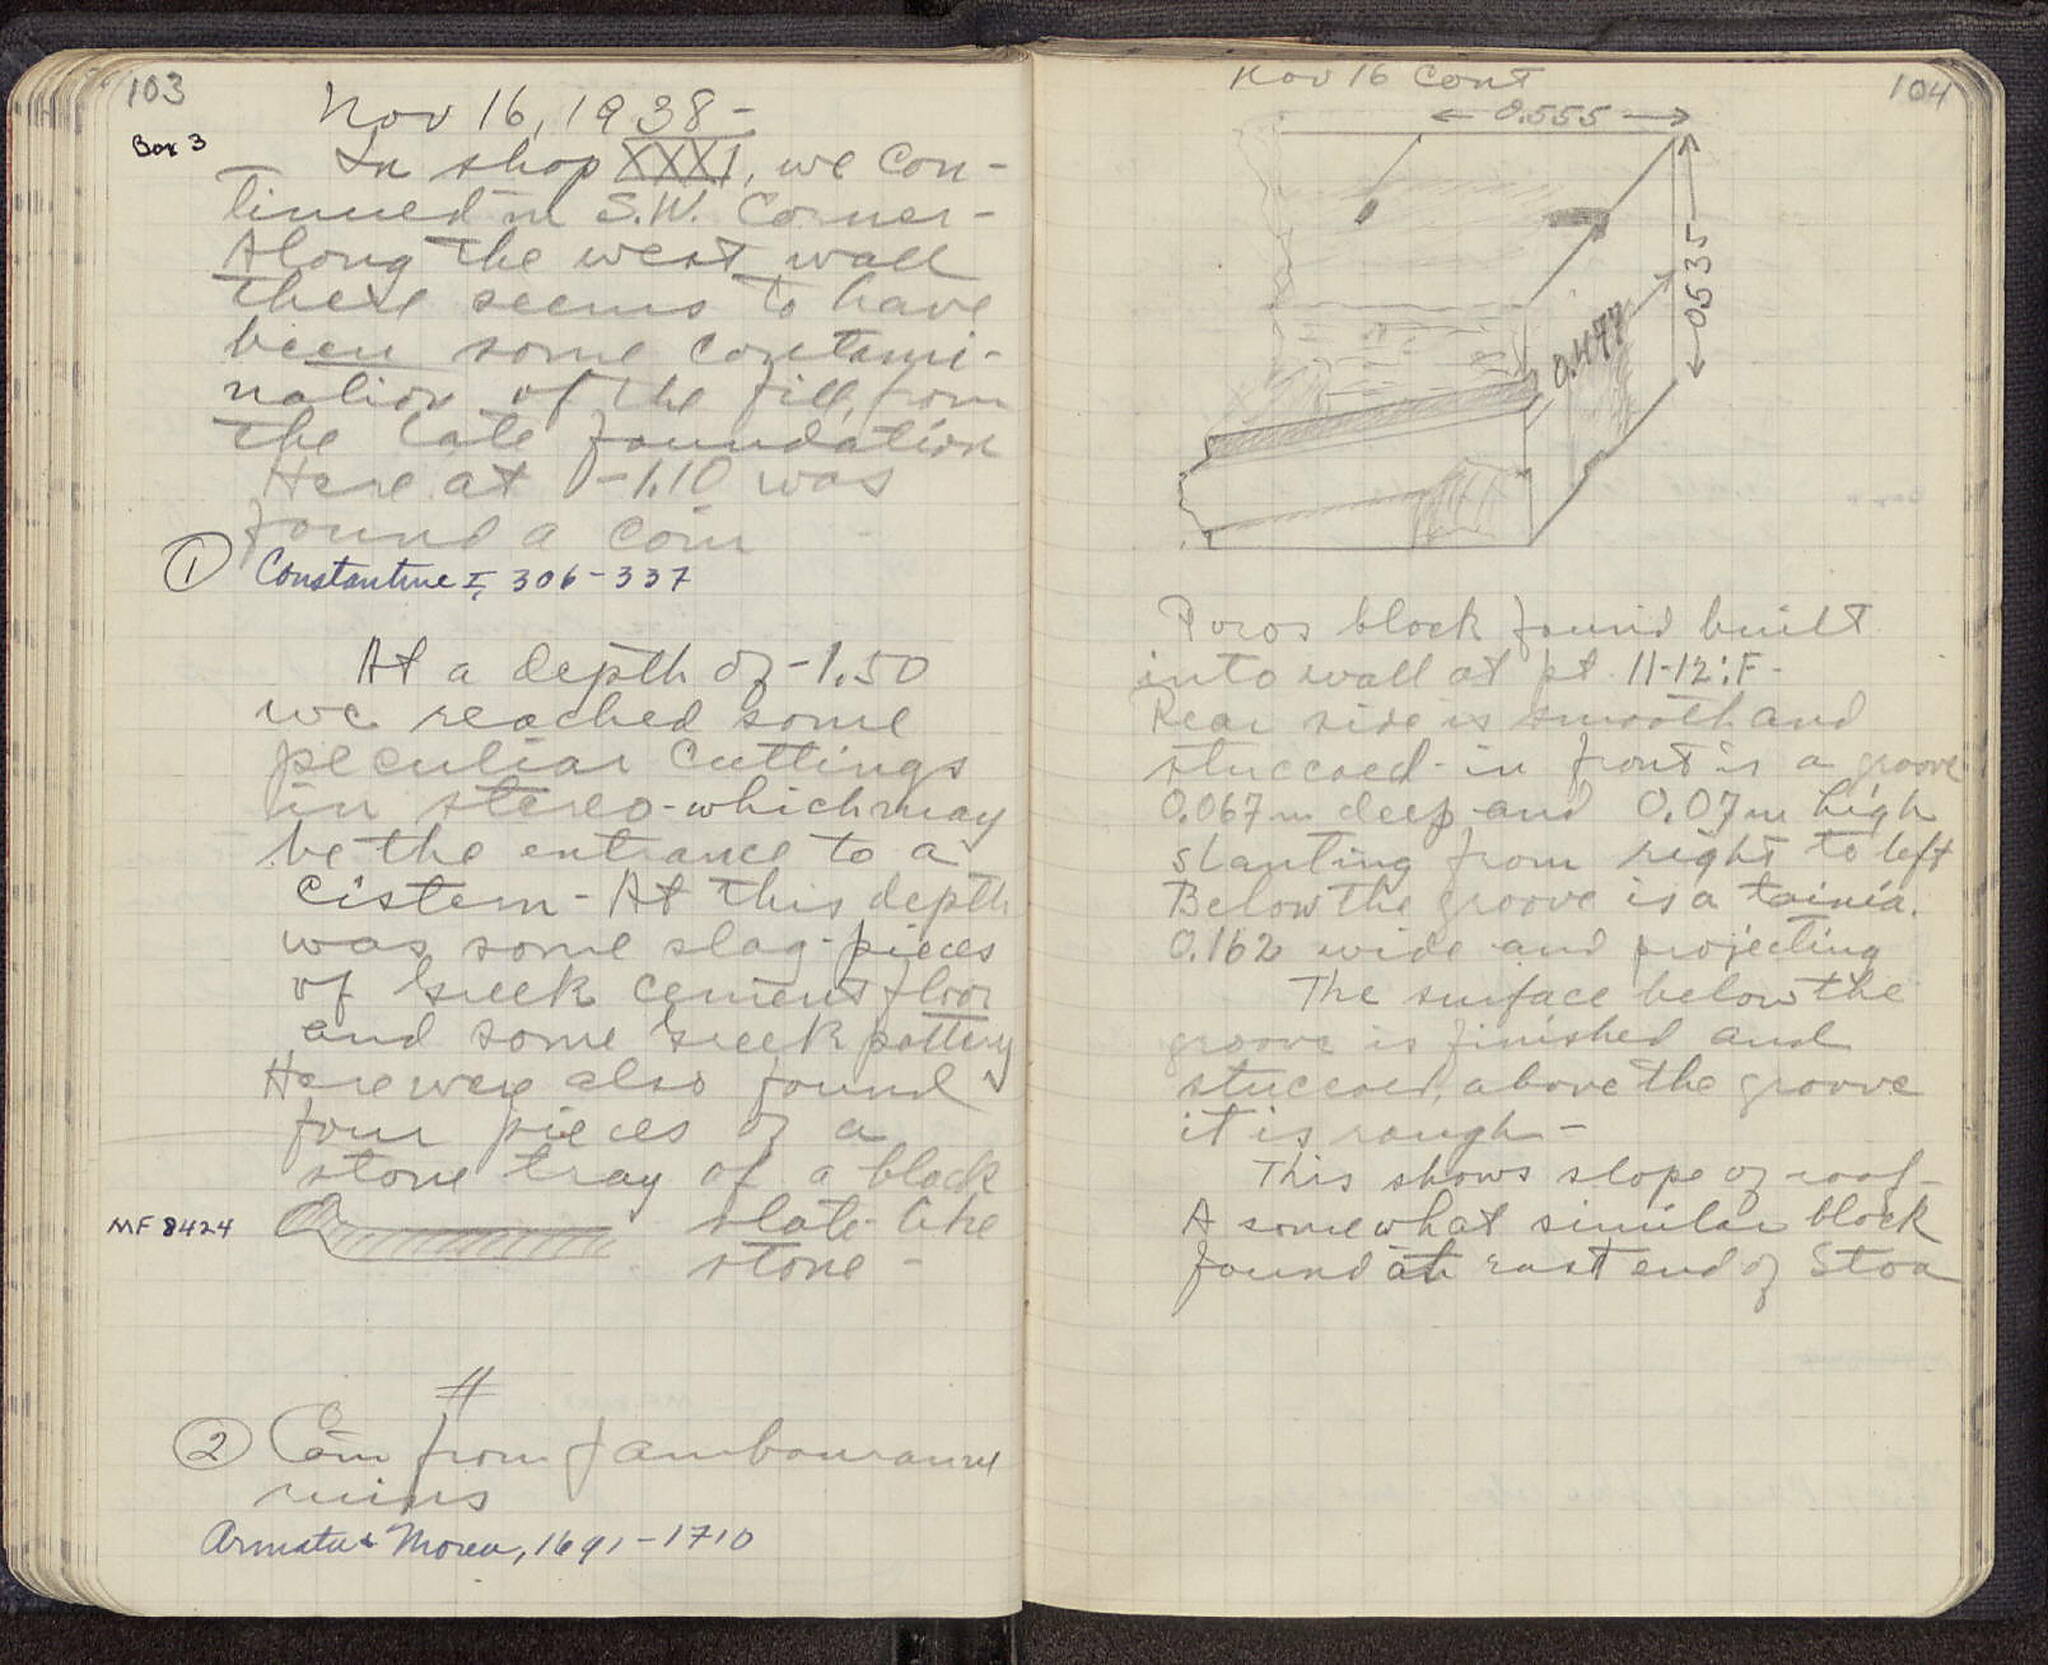 103
Nov 16, 1938 -
Box 3
In shop XXXI, we con-
tinued in S.W. Corner -
Along the west wall
there seems to have
been some contami-
nation of the fill, from
the late foundation
Here at -1.10 was
found a coin
1 Constantine I, 306-337
At a depth of -1.50
we reached some
peculiar cuttings
in stereo - which may
be the entrance to a
cistern - At this depth
was some slag - pieces
of Greek cement floor
and some Greek pottery
Here were also found
four pieces of a
stone tray of a black
MF 8424 slate-like
stone -
2 Coin from
ruins
Armata & Morea, 1691-1710
Nov 16 Cont
104
0.555
0.535
0.477
Poros block found built
into wall at pt. 11-12:F -
Rear side is smooth and
stuccoed - in front is a groove
0.067m deep and 0.07m high
slanting from right to left
Below the groove is a tainia.
0.162 wide and projecting
The surface below the
groove is finished and
stuccoed, above the groove
it is rough -
This shows slope of roof -
A somewhat similar block
found at east end of Stoa